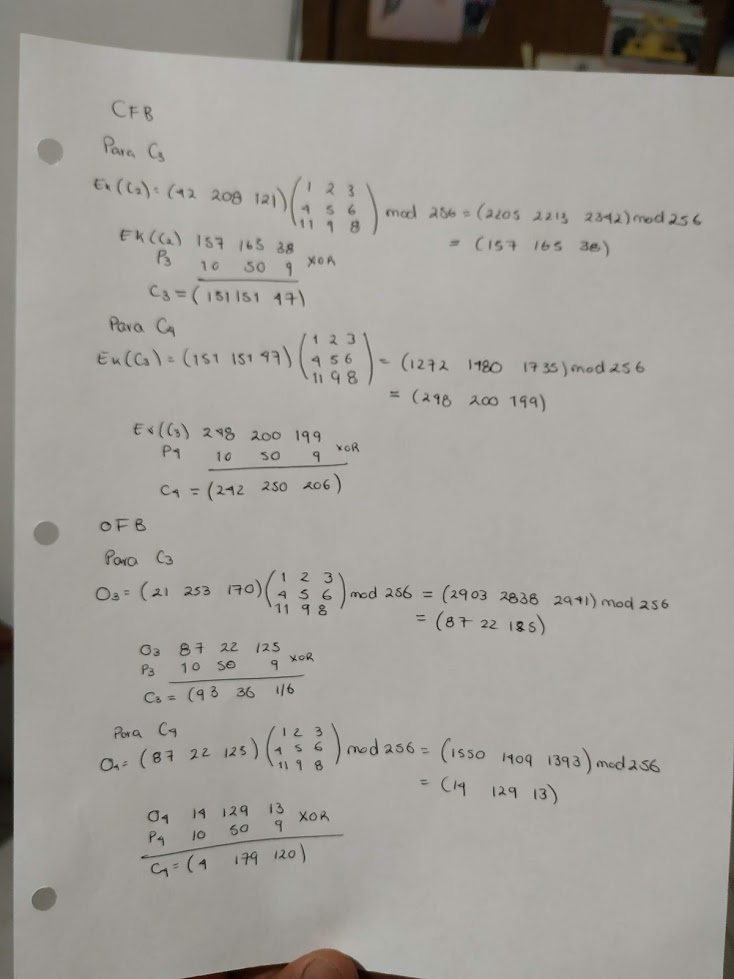 CFB
Para C3
Ek(C2) = (42 208 121) (1 2 3
4 5 6
11 9 8) mod 256 = (2205 2213 2342) mod 256
= (157 165 38)
Ek(C2) 157 165 38
P3 10 50 9 XOR
C3 = (151 151 47)
Para C4
Ek(C3) = (151 151 47) (1 2 3
4 5 6
11 9 8) = (1272 1480 1735) mod 256
= (248 200 199)
Ek(C3) 248 200 199
P4 10 50 9 XOR
C4 = (242 250 206)
OFB
Para C3
O3 = (21 253 170) (1 2 3
4 5 6
11 9 8) mod 256 = (2903 2838 2941) mod 256
= (87 22 125)
O3 87 22 125
P3 10 50 9 XOR
C3 = (93 36 116
Para C4
O4 = (87 22 125) (1 2 3
4 5 6
11 9 8) mod 256 = (1550 1409 1393) mod 256
= (14 129 13)
O4 14 129 13 XOR
P4 10 50 9
C4 = (4 179 120)